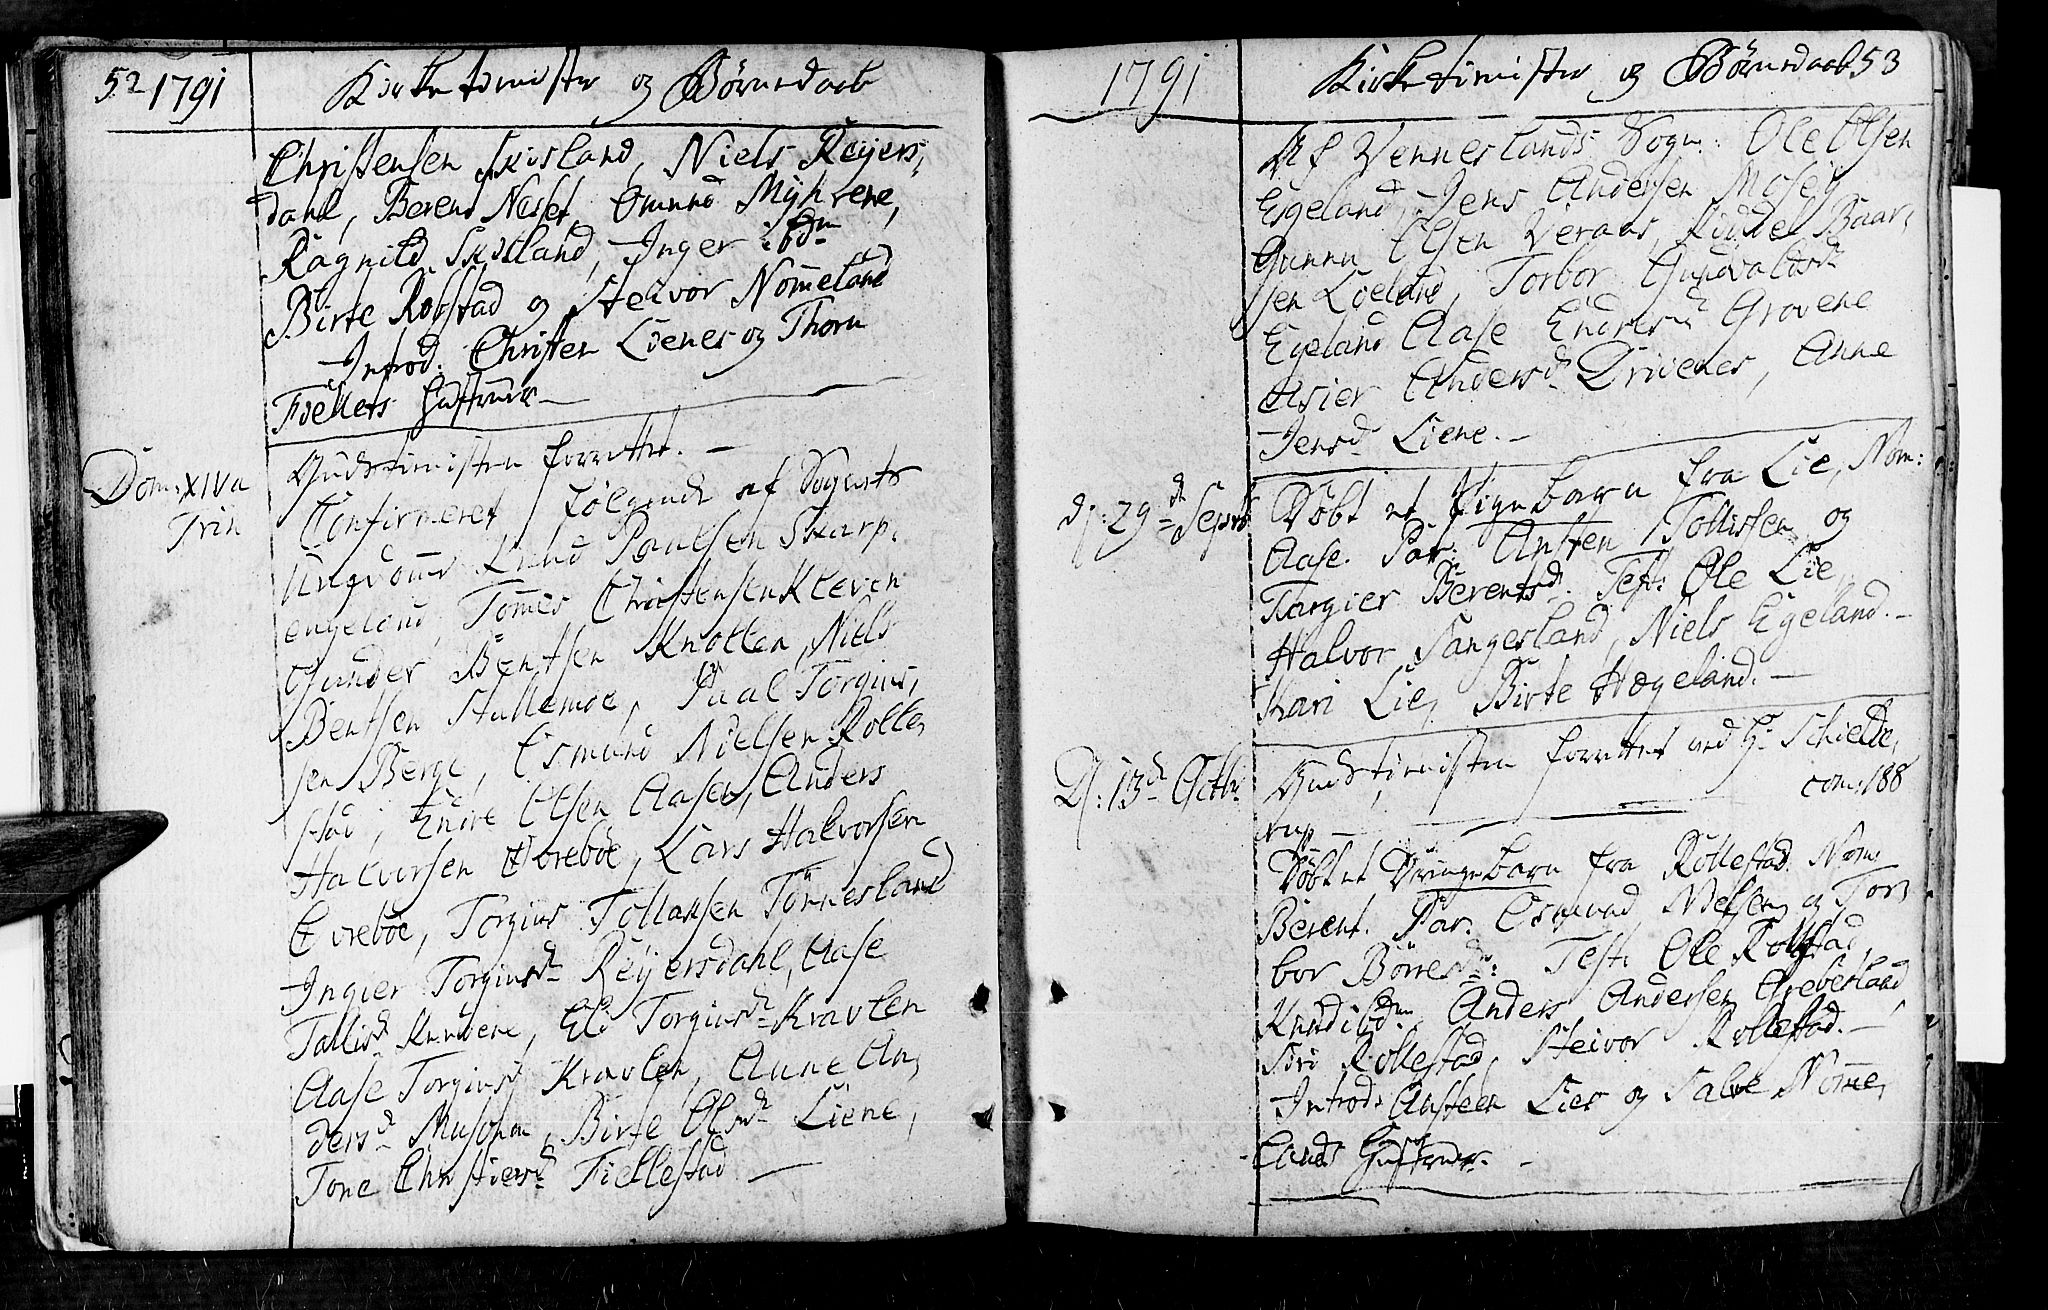 52 1791 Kirketienister og Börnedaab
Christensen Skisland, Niels Reijers,
dahl, Berent Neset, Omund Mijhrene,
Ragnild Skisland, Inger ibdm
Birte Robstad og Steivor Nomeland
Introd. Christen Lienes og Thom
Fiellets Hustruer
Dom. XIV a
Trin
Gudstienisten forrettet. —
Confirmeret følgende af Sognets
Ungdom Knud Poulsen Skarp,
engeland, Tomes Christensen Kleven
Gunder Bentsen Knotten, Niels
Bentsen Stallemoe, Paal Torgius,
sen Berge, Osmund Nielsen Rolle,
stad, Endre Olsen Aasen, Anders
Halvorsen Øvreböe, Lars Halvorsen
Øvreböe, Torgius Tollaksen Tönnesland
Ingier Torgiusd. Reijersdahl, Aase
Tallisd. Eli Torgiusd. Kravlen
Aase Torgiusd. Kravlen, Anne An,
dersd. Birte Olsd. Liene,
Tone Christiersd. Fiellestad —
1791 Kirketienister og Börnedaab 53
Af Vennerslands Sogn: Ole Olsen
Egeland, Jens Andersen Moseig
Gunnu Olsen Veraas, Baar,
sen Loeland, Torbor Gundvaldsd.
Egeland Aase Endresd. Grovene
Asier Andersd. Drivenes, Anne
Jensd. Liene. —
d: 29de Septb
Döbt et Pigebarn fra Lie, Nom:
Aase. Par: Ansten Tollisten og
Targier Berentsd. Test: Ole Lie,
Halvor Sangesland, Niels Egeland. —
Kari Lie, Birte Hægeland. —
D: 13de Octbr.
Gudstienisten forrettet ved Hr Schielde,
rup — com: 188
Döbt et Drengebarn fra Rollestad Nom:
Berent. Par. Osmund Nielsen og Tor,
bor Börresd: Test: Ole Rollestad,
Knud ibdm Anders Andersen Grebesland
Siri Rollestad, Steivor Rollestad. —
Introd: Ansteen Lies og Salve Nomme,
lands Hustruer. —